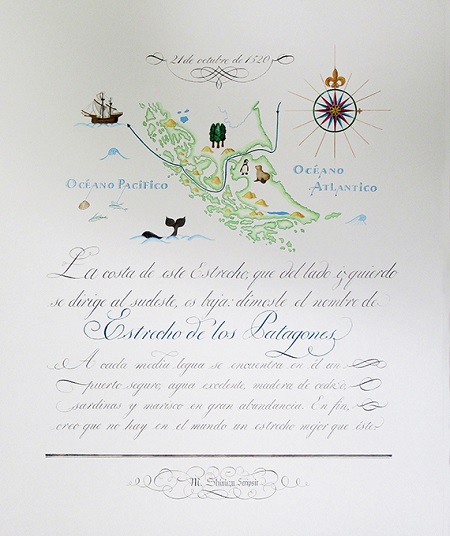 21 de octubre de 1520
OCÉANO PACÍFICO
OCÉANO
ATLANTICO
La costa de este Estrecho, que del lado izquierdo
se dirige al sudeste, es baja: dímosle el nombre de
Estrecho de los Patagones
A cada media legua se encuentra en él un
puerto seguro, agua excelente, madera de cedro,
sardinas y marisco en gran abundancia. En fin,
creo que no hay en el mundo un estrecho mejor que éste.
M. Scripsit